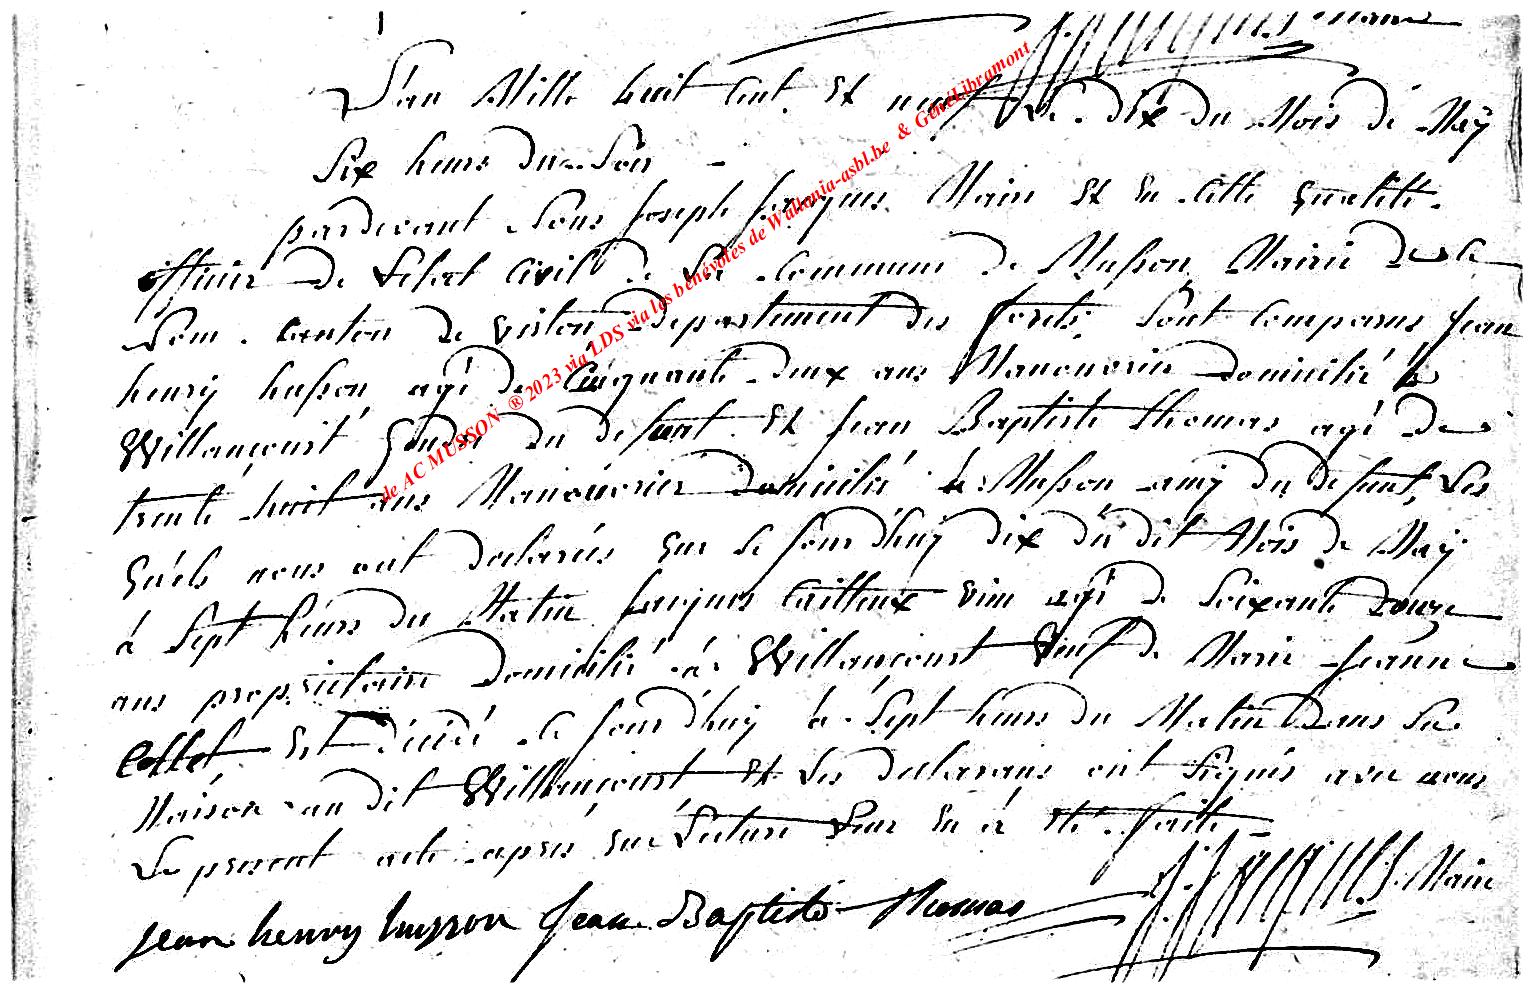 Maire
L'an Mille huit Cent Et neuf Le dix du Mois de Maÿ
Six heures du Soir -
pardevant Nous Joseph Jacques Maire Et En Cette Qualité
officier de L'etat Civil de La Commune de Musson Mairie de ce
Nom Canton de Virton departement des forets, Sont Comparus Jean
henry husson agé de Cinquante deux ans Manouvrier domicilié à
Willancourt Gendre du defunt Et Jean Baptiste thomas agé de
trente huit ans Manouvrier domicilié à Musson amy du defunt, Les
Quels nous ont declarés Que Le Jourd'huy dix du dit Mois de Maÿ
à Sept heures du Matin Jacques Cailleux agé de Soixante Douze
ans proprietaire domicilié à Willancourt Veuf de Marie Jeanne
Collet Est décédé ce Jourd'huy à Sept heures du Matin Dans Sa
Maison au dit Willancourt Et Les declarans ont Signés avec nous
Le present acte après que Lecture Leur En à Eté faite
J. Jacques Maire
jean henry husson Jean Baptiste Thomas
de AC MUSSON ® 2023 via LDS via les bénévoles de Wallonia-asbl.be & GénéLibramont